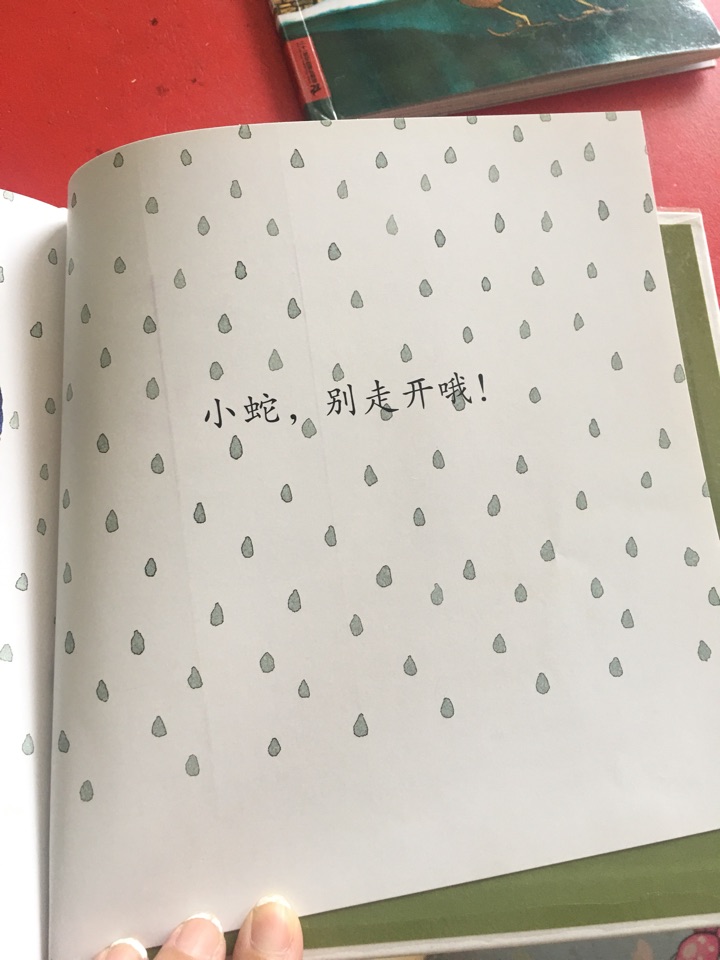 小蛇，别走开哦！